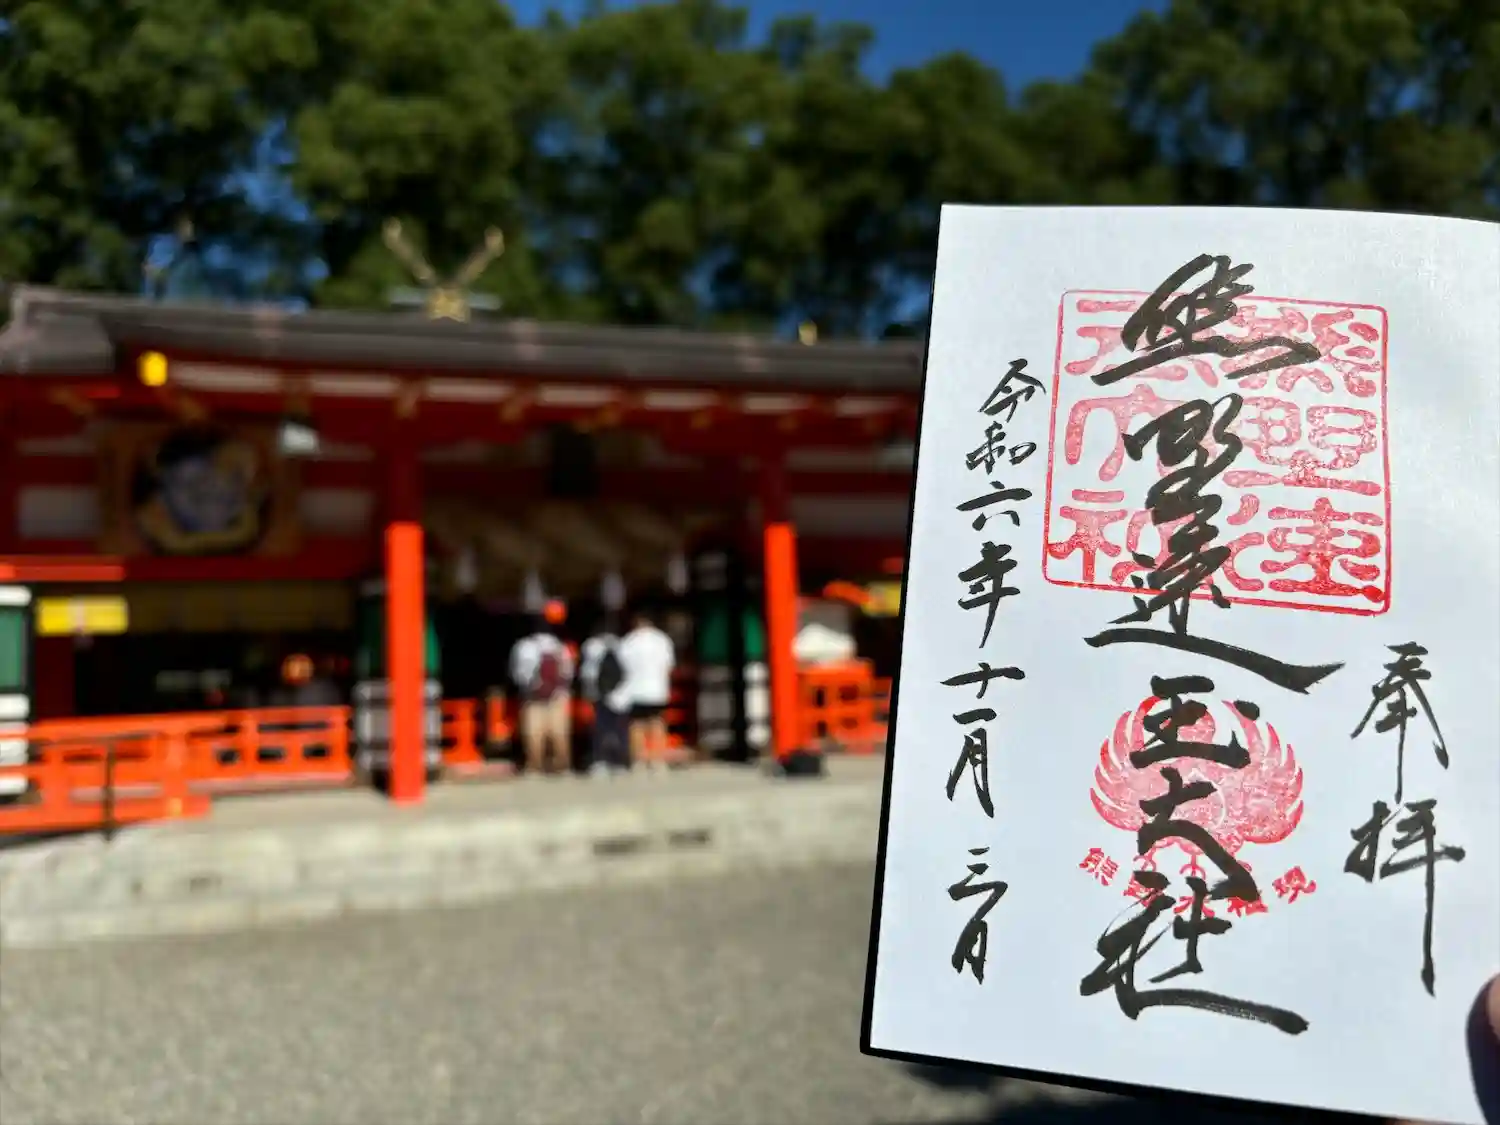 奉拝
熊野速玉大社
熊野速
玉大社
熊野大権現
令和六年十一月三日